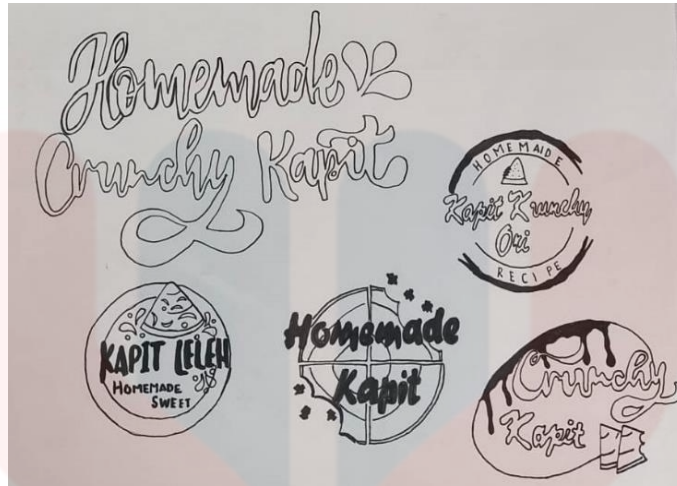 Homemade
Crunchy Kapit
HOMEMAIDE
Kapit Krunchy
Ori
RECIPE
KAPIT LELEH
HOMEMADE
SWEET
Homemade
Kapit
Crunchy
Kapit